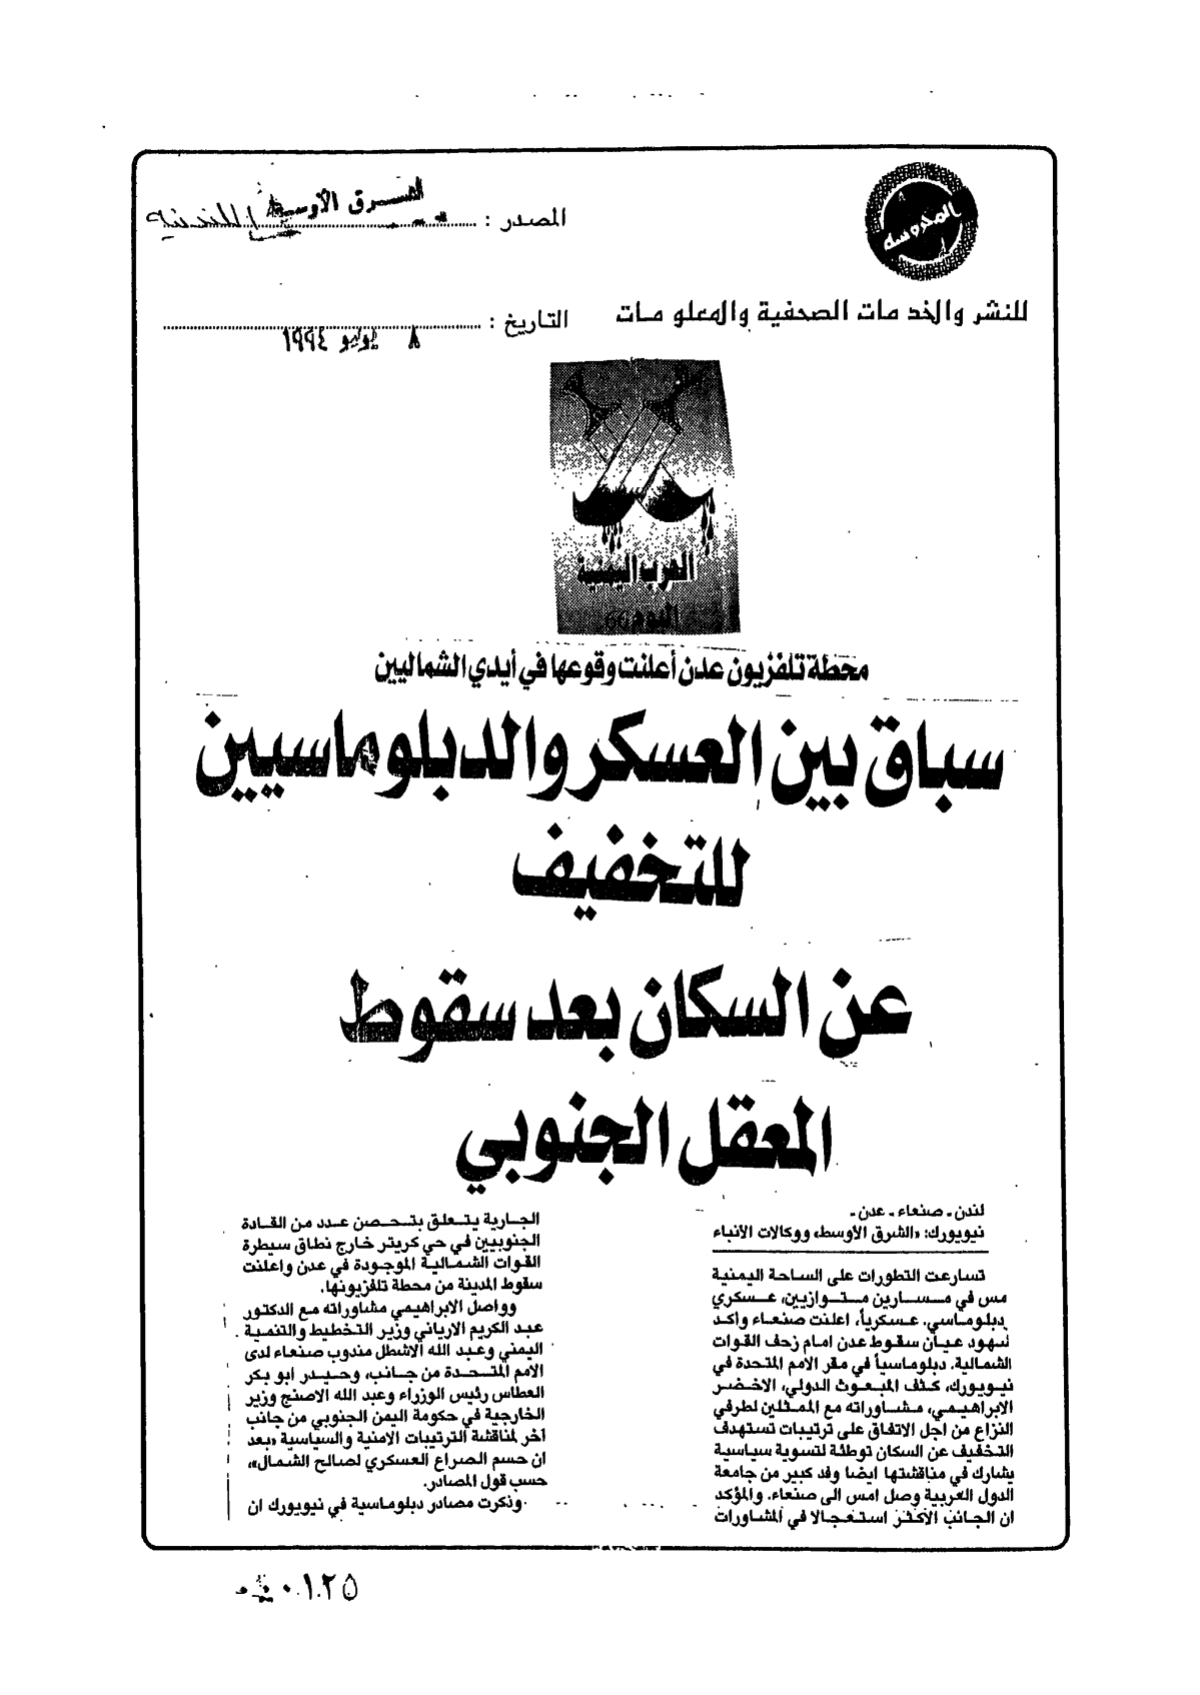 المحروسة
المصدر : الشرق الأوسط اللندنية
للنشر والخدمات الصحفية والمعلومات
التاريخ :
٨ يوليو ١٩٩٤
الحرب اليمنية
اليوم 66
محطة تلفزيون عدن أعلنت وقوعها في أيدي الشماليين
سباق بين العسكر والدبلوماسيين
للتخفيف
عن السكان بعد سقوط
المعقل الجنوبي
لندن ـ صنعاء ـ عدن ـ
نيويورك: «الشرق الأوسط» ووكالات الأنباء
تسارعت التطورات على الساحة اليمنية
مس في مسارين متوازيين، عسكري
دبلوماسي. عسكرياً، اعلنت صنعاء وأكد
شهود عيان سقوط عدن امام زحف القوات
الشمالية. دبلوماسياً في مقر الامم المتحدة في
نيويورك، كثف المبعوث الدولي، الاخضر
الابراهيمي، مشاوراته مع الممثلين لطرفي
النزاع من اجل الاتفاق على ترتيبات تستهدف
التخفيف عن السكان توطئة لتسوية سياسية
يشارك في مناقشتها ايضا وفد كبير من جامعة
الدول العربية وصل امس الى صنعاء. والمؤكد
ان الجانب الأكثر استعجالا في المشاورات
الجارية يتعلق بتحصن عدد من القادة
الجنوبيين في حي كريتر خارج نطاق سيطرة
القوات الشمالية الموجودة في عدن واعلنت
سقوط المدينة من محطة تلفزيونها.
وواصل الابراهيمي مشاوراته مع الدكتور
عبد الكريم الارياني وزير التخطيط والتنمية
اليمني وعبد الله الاشطل مندوب صنعاء لدى
الامم المتحدة من جانب، وحيدر ابو بكر
العطاس رئيس الوزراء وعبد الله الاصنج وزير
الخارجية في حكومة اليمن الجنوبي من جانب
آخر لمناقشة الترتيبات الامنية والسياسية «بعد
ان حسم الصراع العسكري لصالح الشمال»،
حسب قول المصادر.
وذكرت مصادر دبلوماسية في نيويورك ان